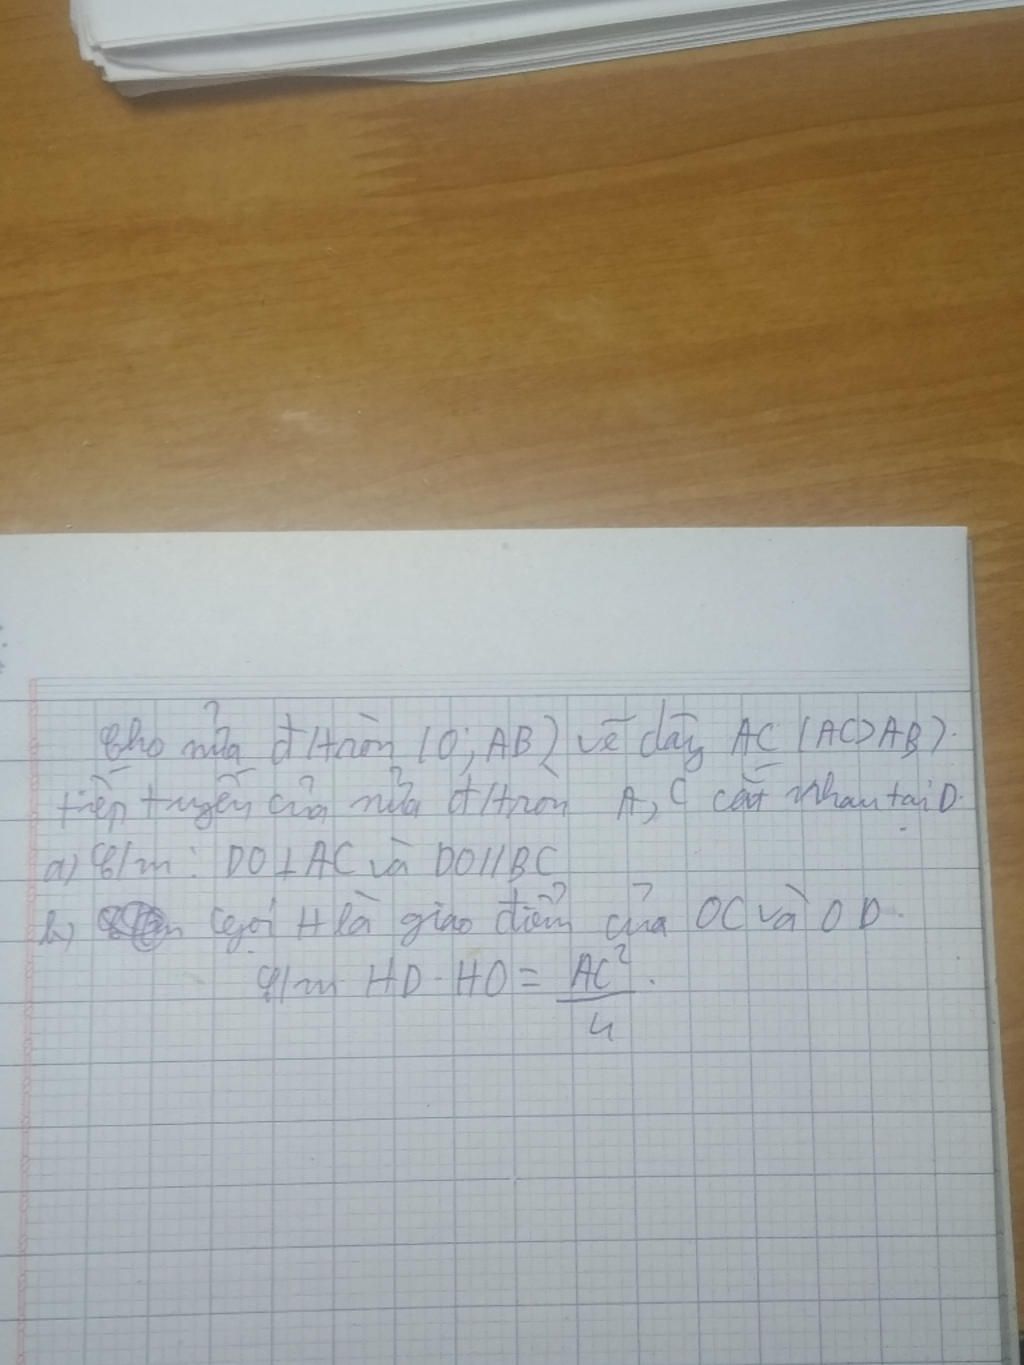 Cho nửa đ/tròn (O; AB) vẽ dây AC (AC>AB).
tiếp tuyến của nửa đ/tròn A, C cắt nhau tại D.
a) C/m: DO⊥AC và DO//BC
b) Gọi H là giao điểm của OC và OD.
C/m HD·HO = AC²/4.